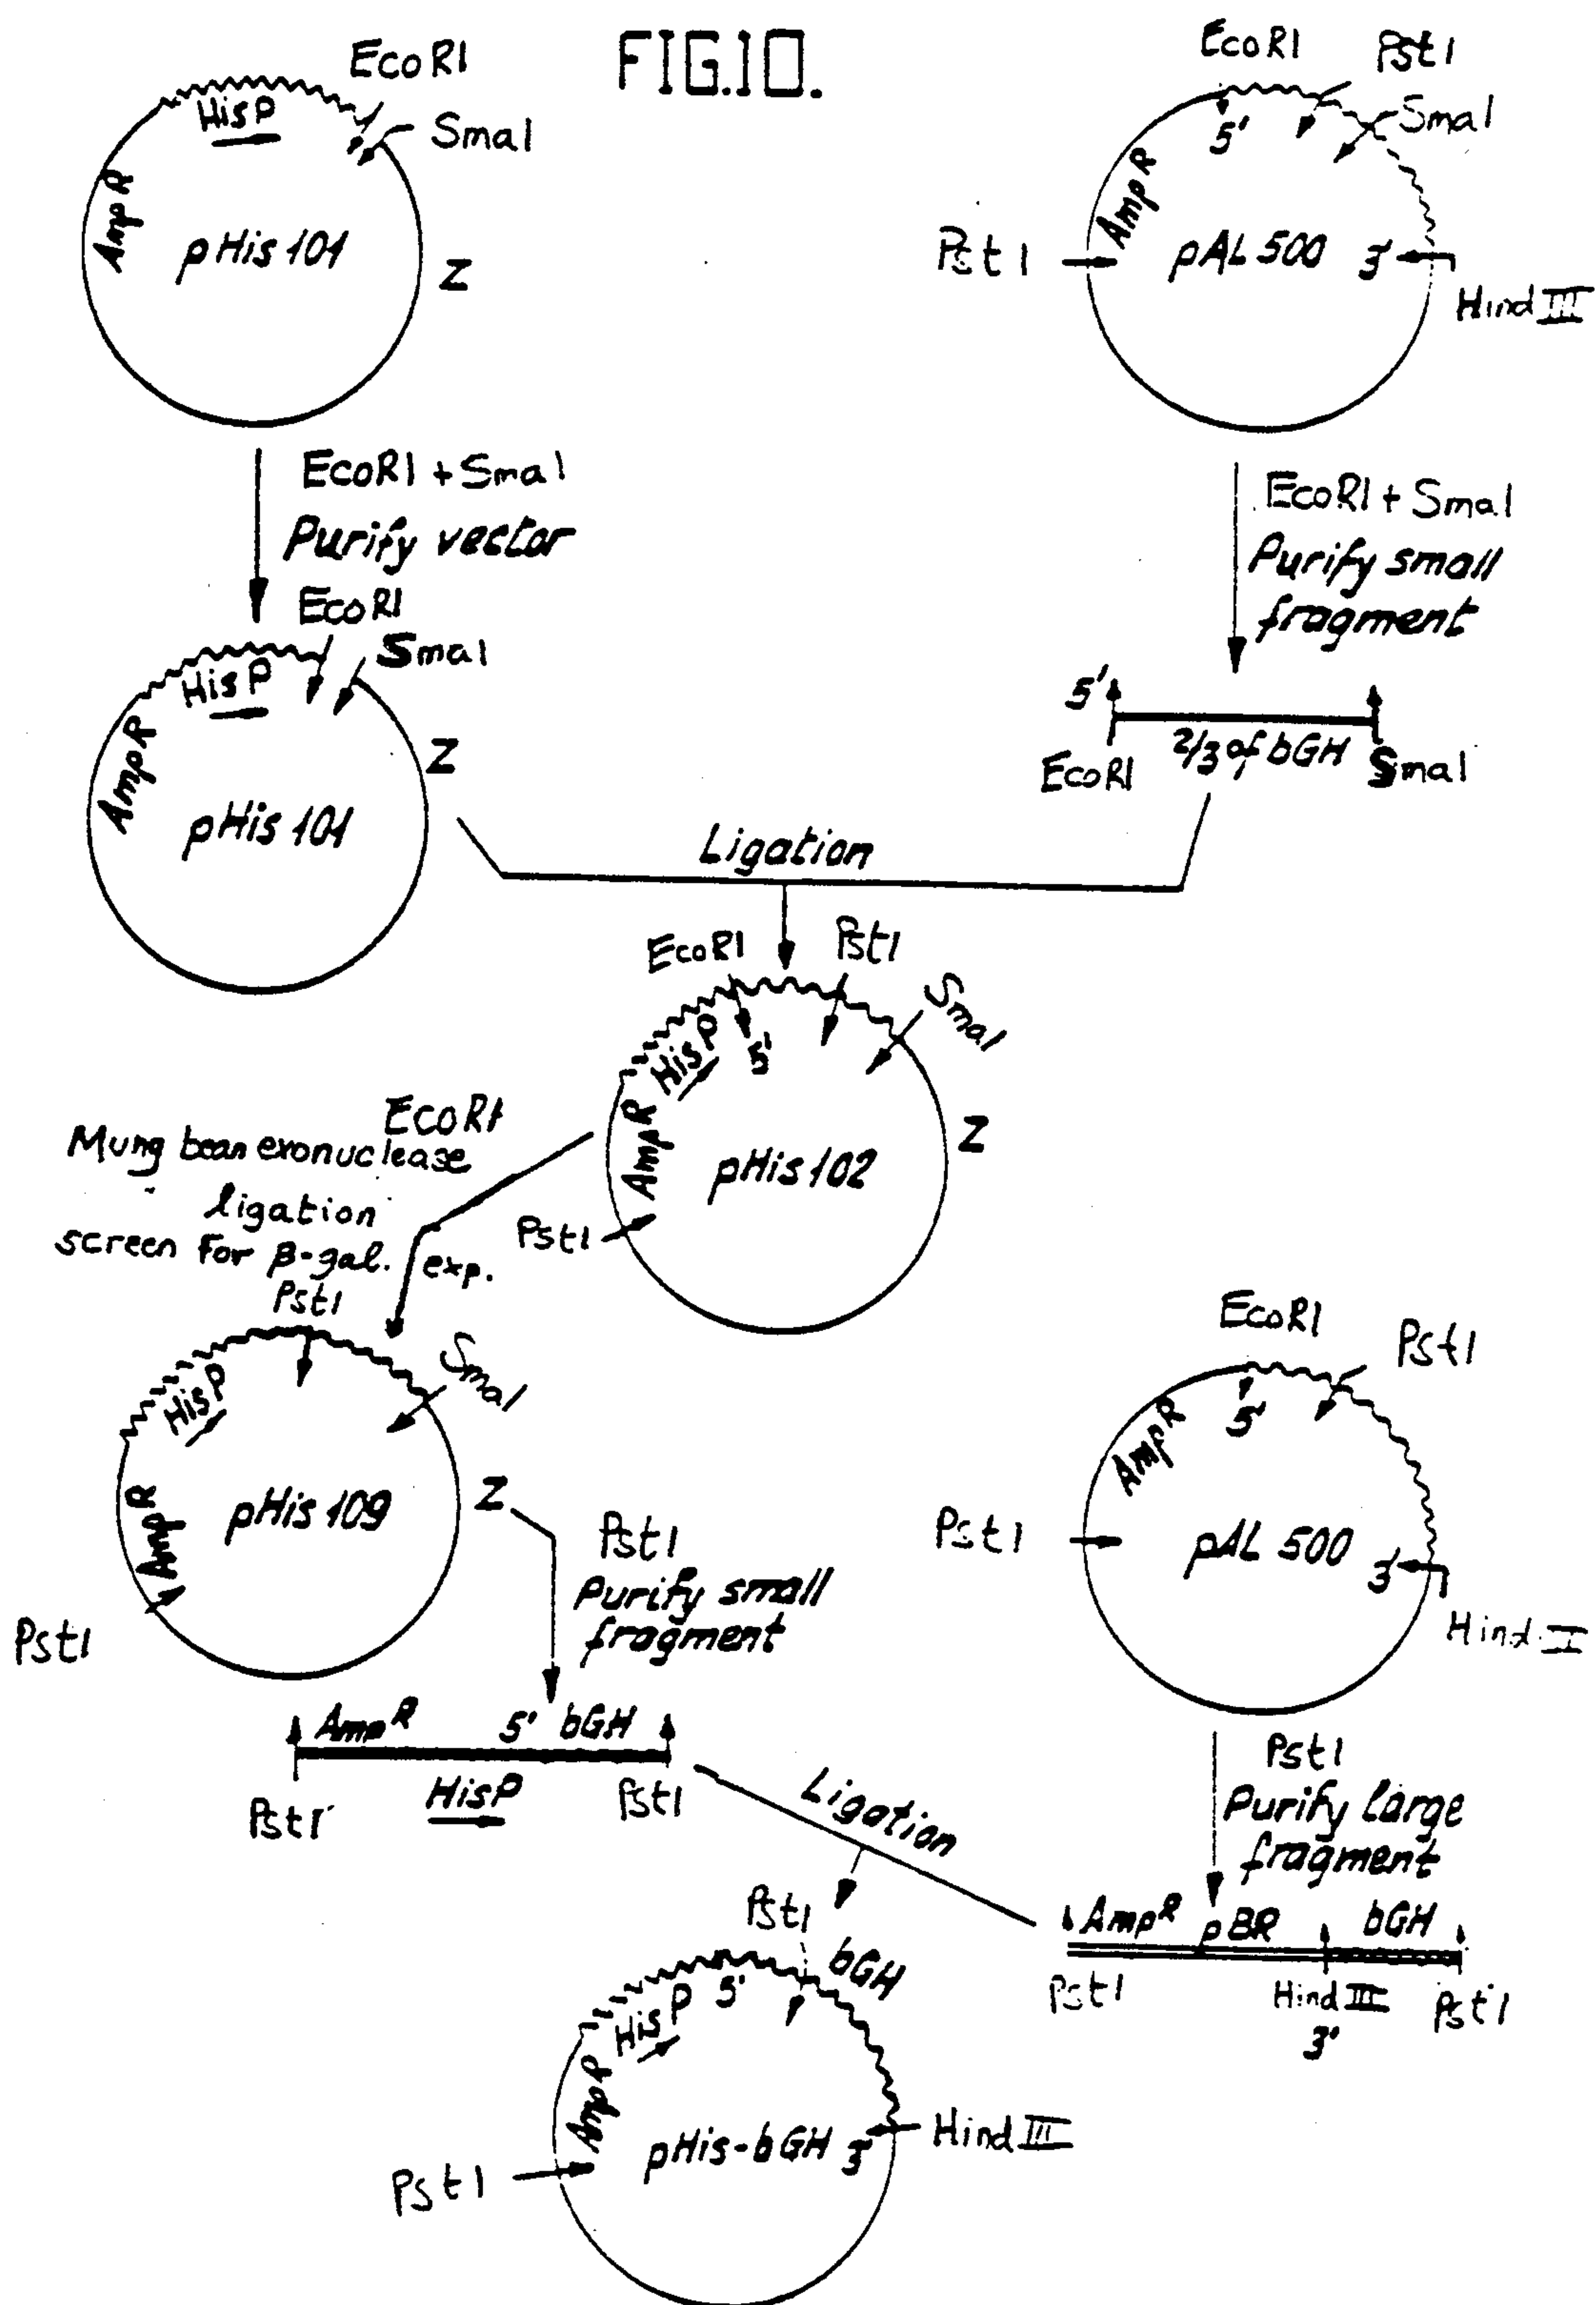 FIG.10.
EcoRI
HisP
SmaI
AmpR
pHis 101
Z
EcoRI
PstI
SmaI
5'
AmpR
PstI
pAL 500
3'
Hind III
EcoRI + SmaI
Purify vector
EcoRI + SmaI
Purify small
fragment
EcoRI
SmaI
HisP
AmpR
Z
pHis 101
5'
EcoRI
2/3 of bGH
SmaI
Ligation
EcoRI
PstI
SmaI
HisP
5'
AmpR
Z
pHis 102
PstI
EcoRI
Mung bean exonuclease
ligation
screen for β-gal. exp.
PstI
SmaI
HisP
AmpR
pHis 109
Z
PstI
PstI
Purify small
fragment
EcoRI
PstI
5'
AmpR
PstI
pAL 500
3'
Hind
AmpR 5' bGH
PstI HisP PstI
Ligation
PstI
Purify large
fragment
AmpR pBR bGH
PstI Hind III PstI
3'
PstI
bGH
HisP 5'
AmpR
pHis-bGH 3'
Hind III
PstI